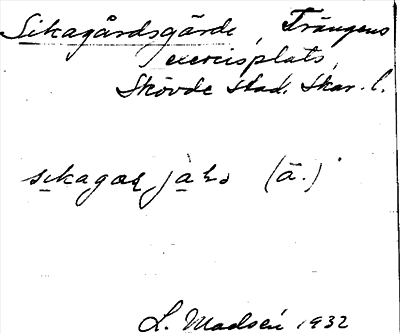 Sikagårdsgärde, Trängens
exercisplats,
Skövde stad. Skar. l.
(ä.)
L. Madsén 1932